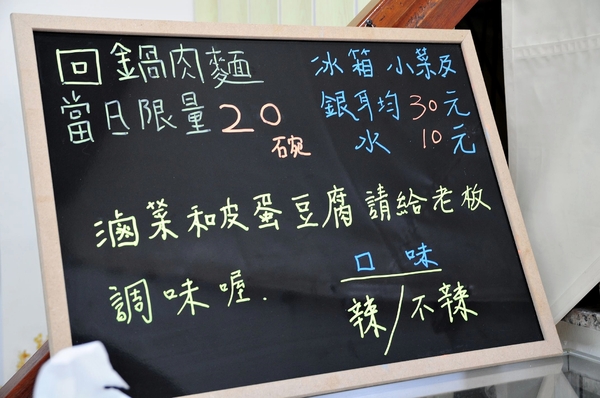 回鍋肉麵
當日限量20
碗
冰箱 小菜及
銀耳均30元
水 10元
滷菜和皮蛋豆腐 請給老板
調味喔.
口味
辣/不辣